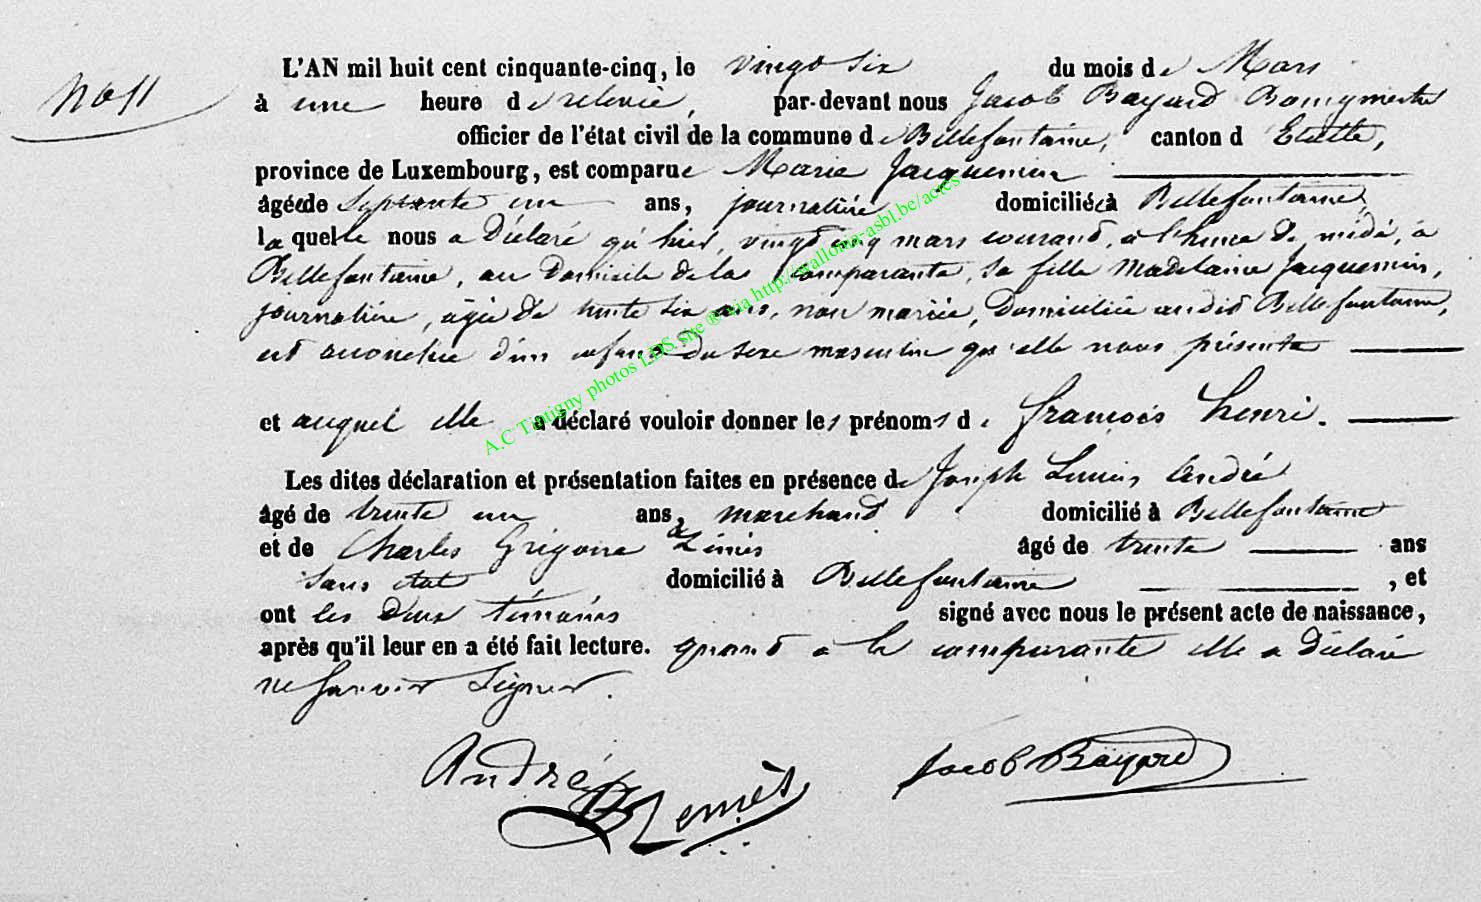 No 11
L'AN mil huit cent cinquante-cinq, le vingt six du mois de Mars
à une heure de relevée, par-devant nous Jacob Bayard Bourgmestre
officier de l'état civil de la commune de Bellefontaine, canton d'Etalle,
province de Luxembourg, est comparue Marie Jacquemin
âgée de Septante un ans, journalière domiciliée à Bellefontaine,
laquelle nous a Déclaré qu'hier, vingt cinq mars courant, à l'heure de midi, à
Bellefontaine, au Domicile de la comparante, sa fille Madelaine Jacquemin,
journalière, âgée de trente six ans, non mariée, Domiciliée audit Bellefontaine,
est accouchée d'un enfant du sexe masculin qu'elle nous présente
et auquel elle a déclaré vouloir donner les prénoms de françois henri.
Les dites déclaration et présentation faites en présence de Joseph André
âgé de trente un ans, marchand domicilié à Bellefontaine
et de Charles Grégoire âgé de trente ans
sans état domicilié à Bellefontaine, et
ont les Deux témoins signé avec nous le présent acte de naissance,
après qu'il leur en a été fait lecture. quant à la comparante elle a Déclaré
ne Savoir Signer.
André Jacob Bayard
A.C Tintigny photos LDS site ® via http://wallonia-asbl.be/actes